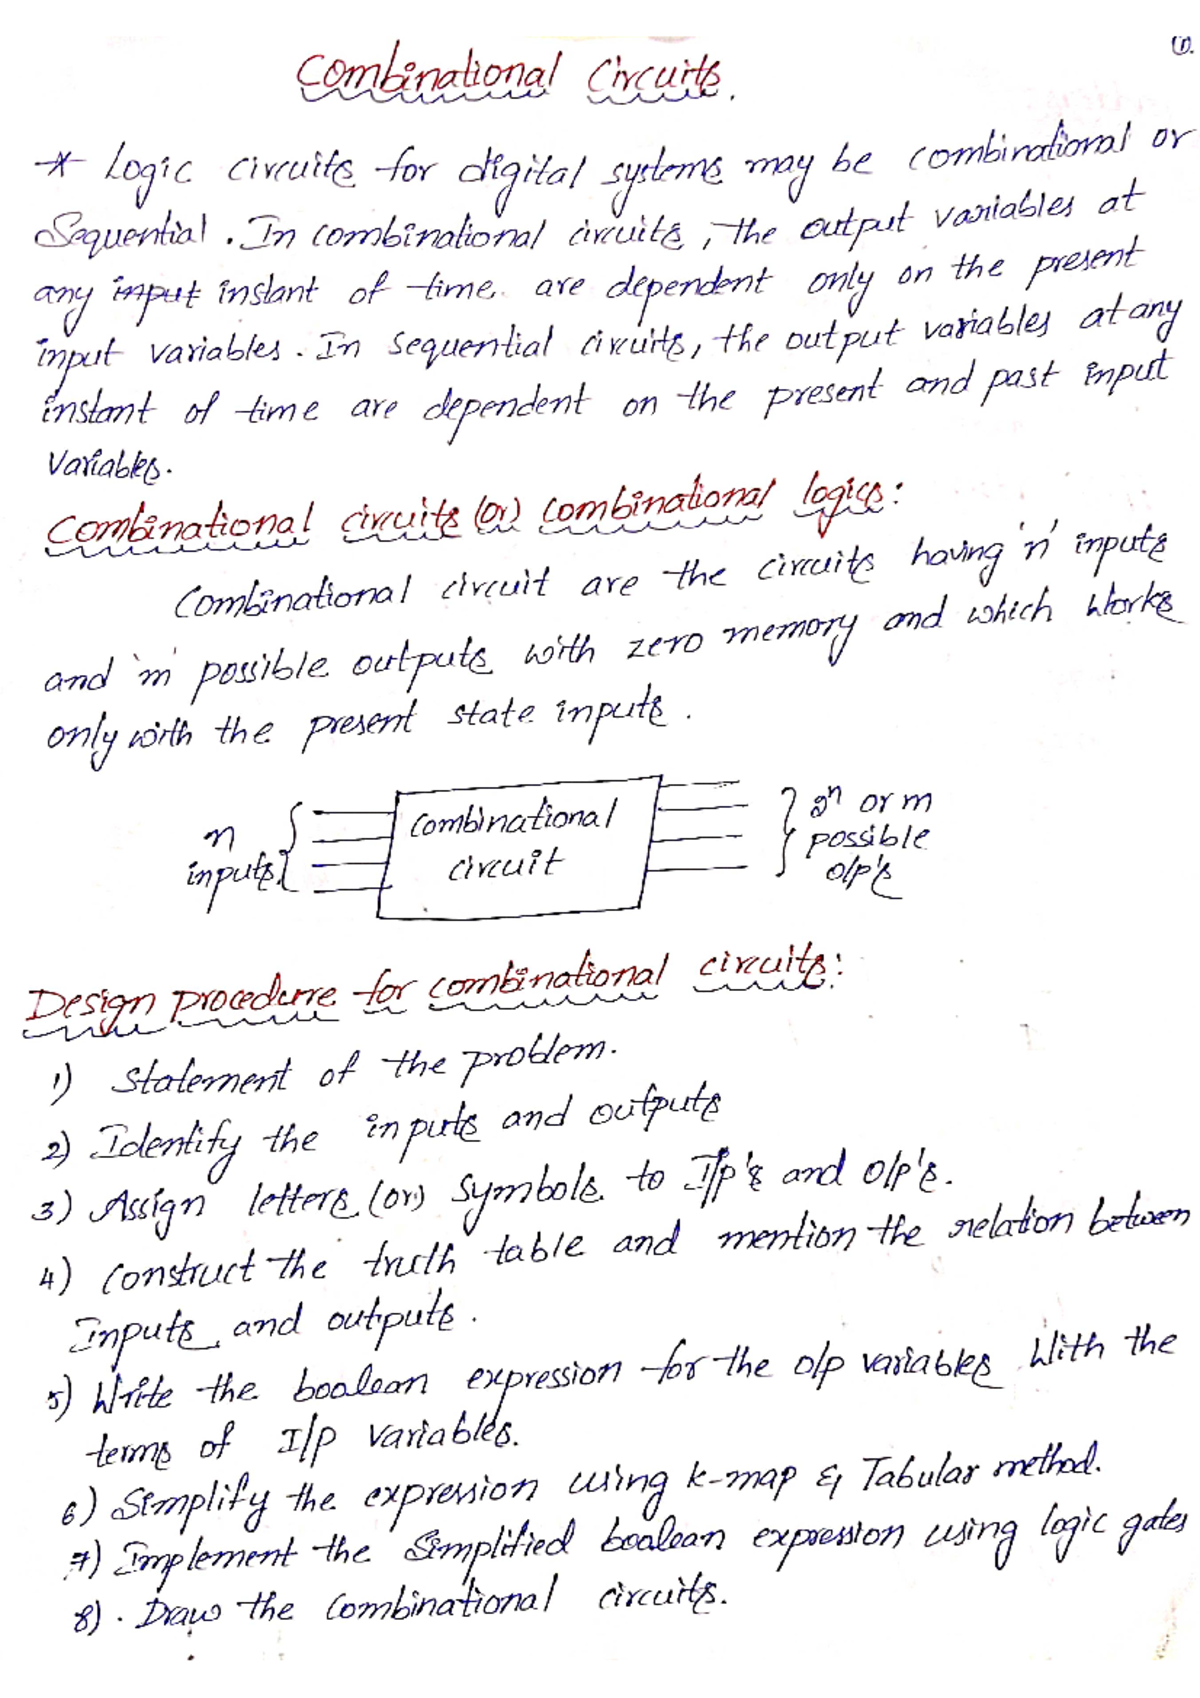 (1).
Combinational Circuits.
* Logic circuits for digital systems may be combinational or
Sequential. In combinational circuits, the output variables at
any input instant of time are dependent only on the present
input variables. In sequential circuits, the output variables at any
instant of time are dependent on the present and past input
Variables.
Combinational circuits (or) combinational logics:
Combinational circuit are the circuits having 'n' inputs
and 'm' possible outputs with zero memory and which Works
only with the present state inputs.
n
inputs
Combinational
circuit
2ⁿ or m
possible
o/p's
Design procedure for combinational circuits:
1) Statement of the problem.
2) Identify the inputs and outputs
3) Assign letters (or) Symbols to I/p's and o/p's.
4) Construct the truth table and mention the relation between
Inputs and outputs.
5) Write the boolean expression for the o/p variables With the
terms of I/p variables.
6) Simplify the expression using k-map & Tabular method.
7) Implement the Simplified boolean expression using logic gates
8). Draw the Combinational circuits.